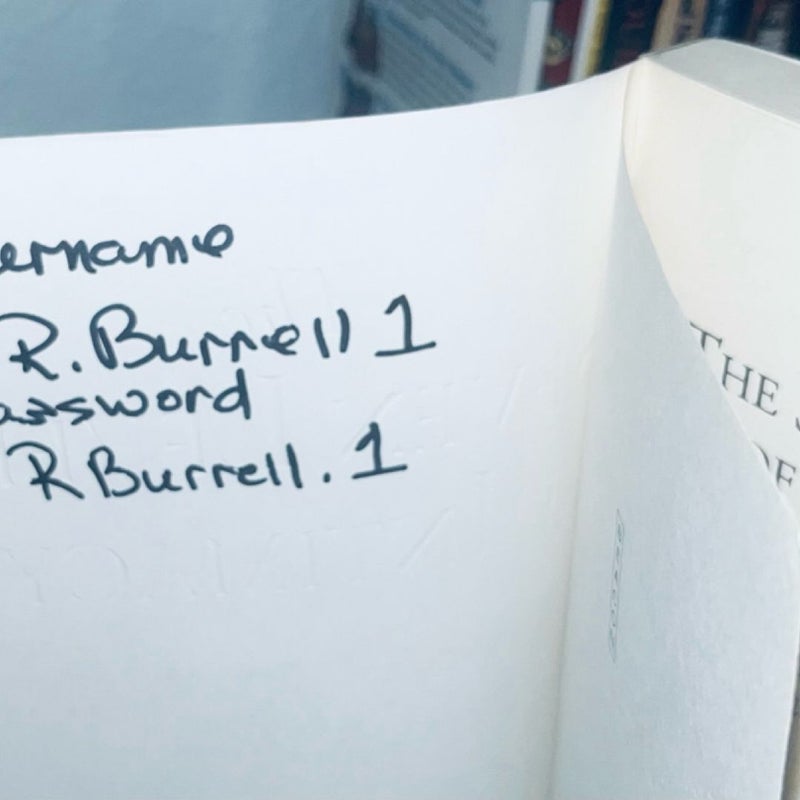 ername
R. Burrell 1
assword
R Burrell . 1
THE
OF